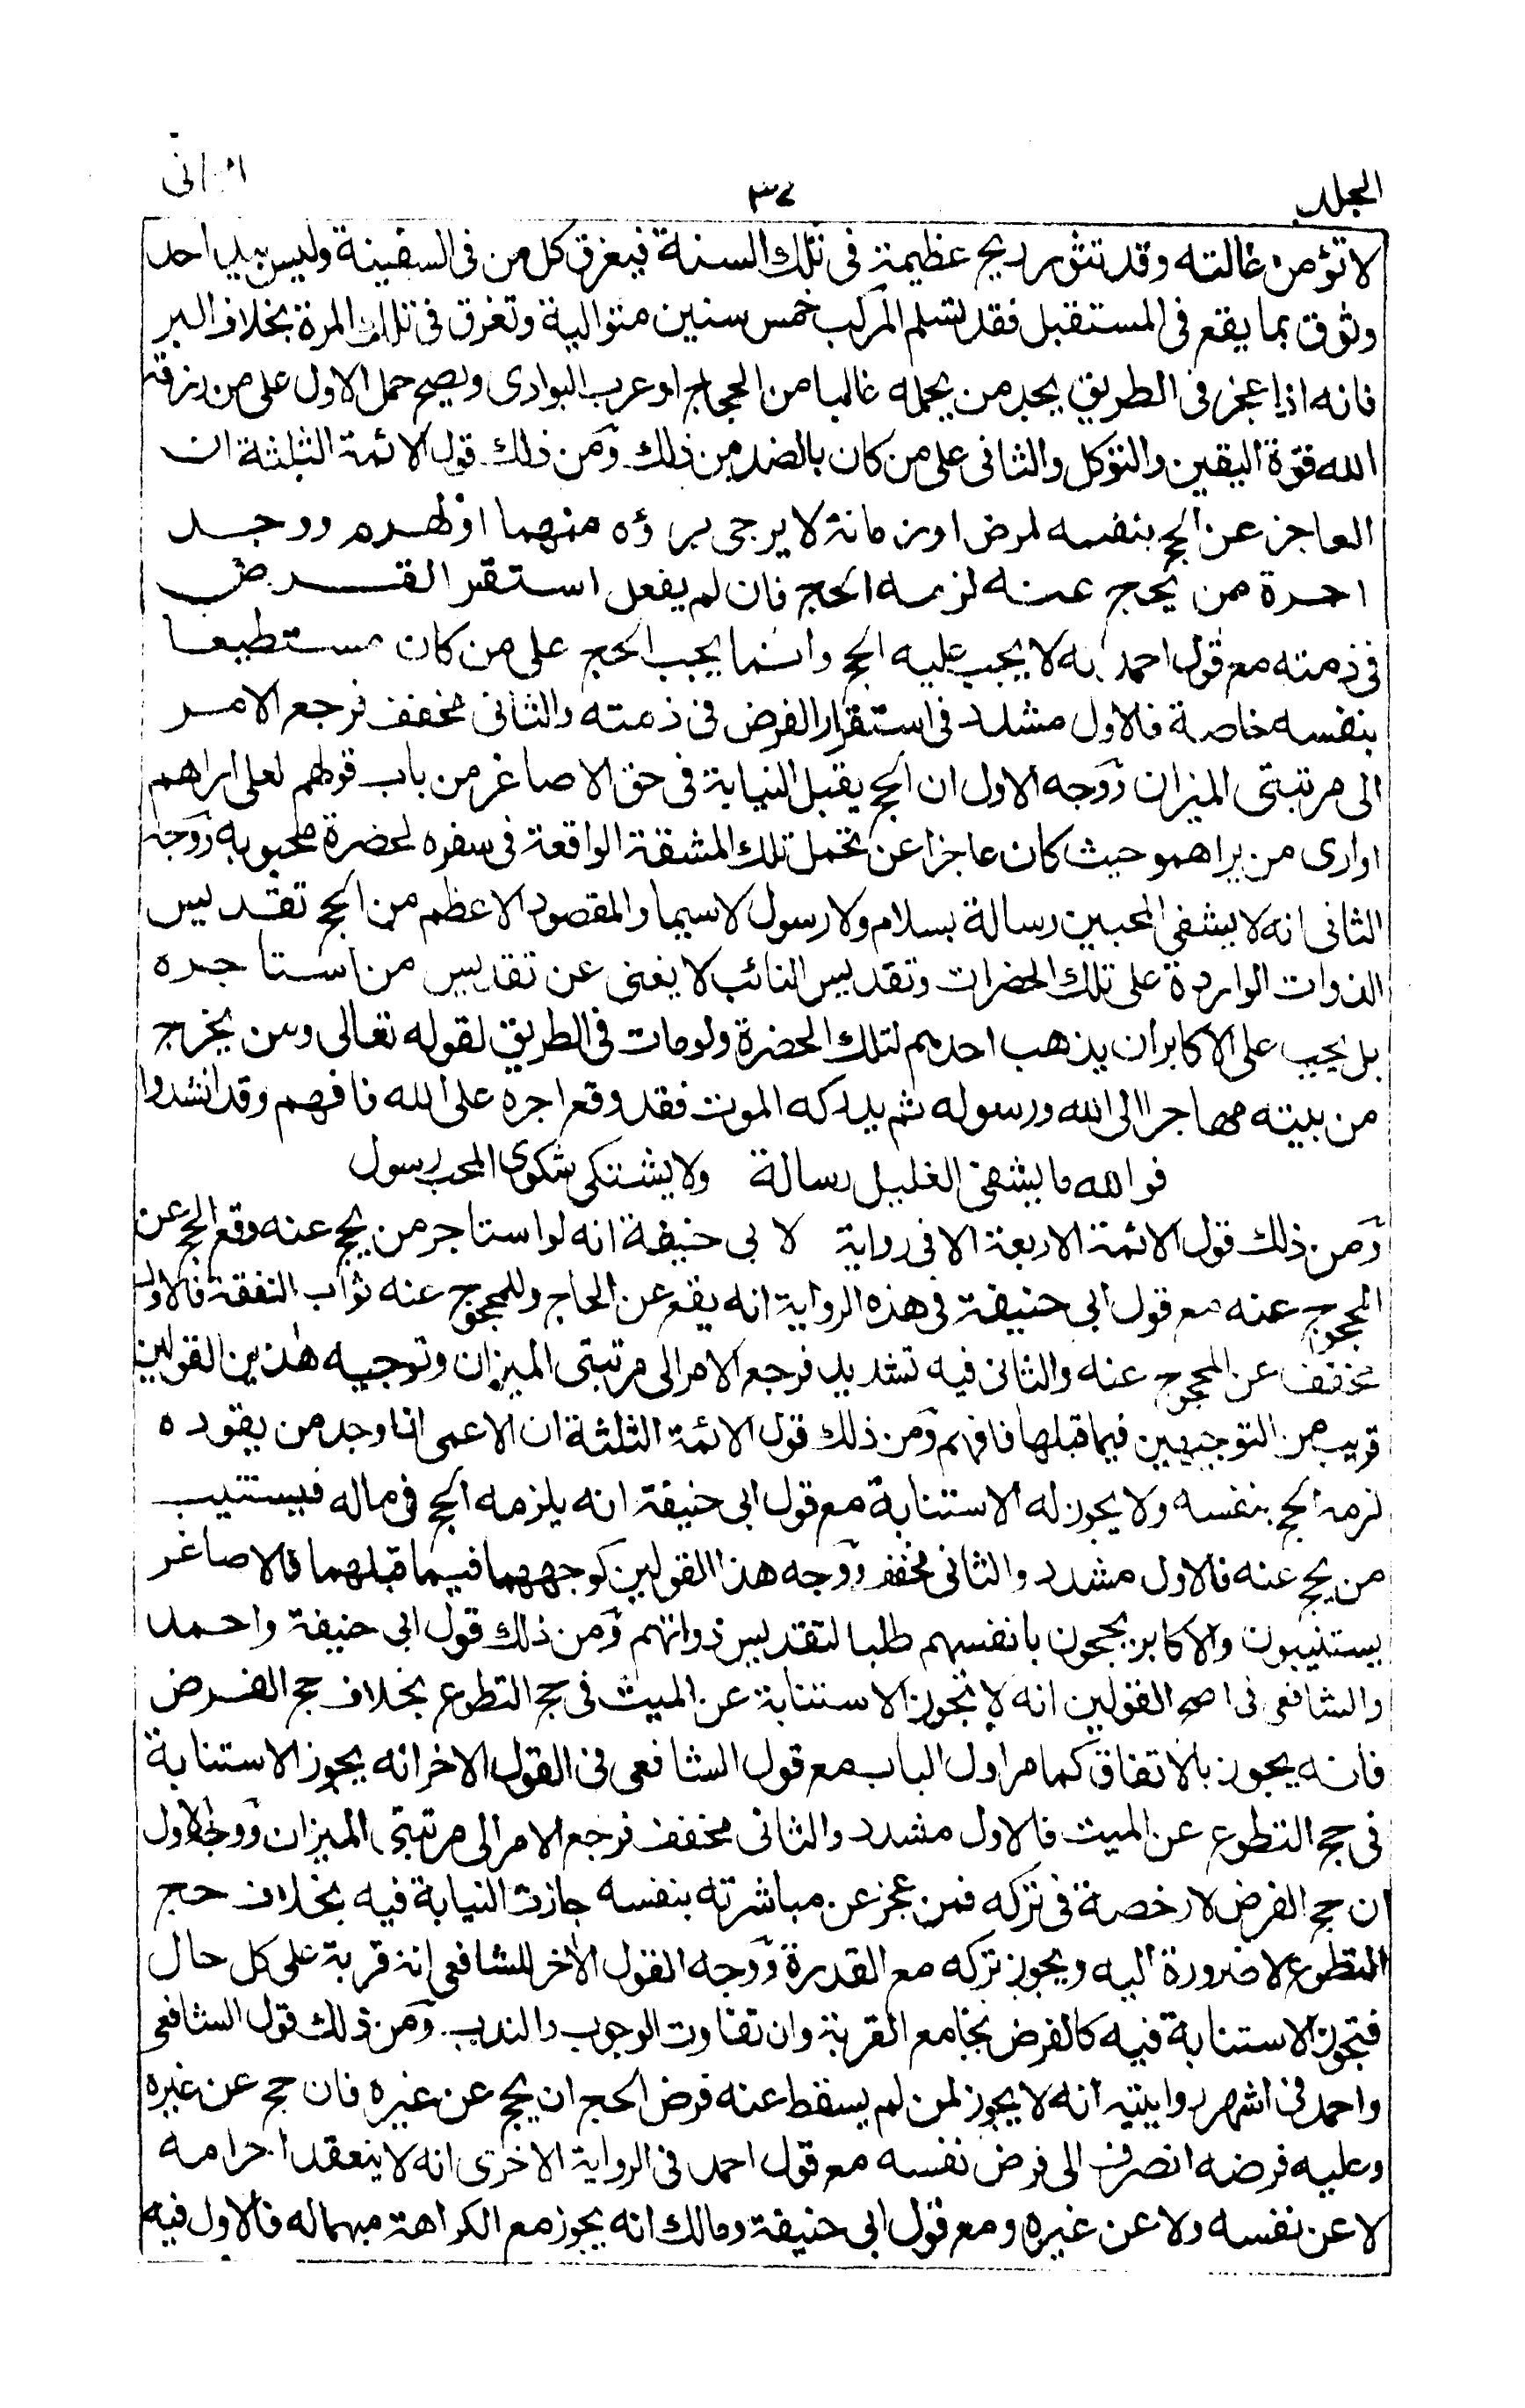 المجلد ٣٧ الثانى
لا تؤمن غائلته وقد تثور ريح عظيمة فى تلك السنة فيغرق كل من فى السفينة وليس بيد احد
وثوق بما يقع فى المستقبل فقد تسلم المركب خمس سنين متوالية وتغرق فى تلك المرة بخلاف البر
فانه اذا عجز فى الطريق يجد من يحمله غالبا من الحجاج او عرب البوادى ويصح حمل الاول على من رزقه
الله قوة اليقين والتوكل والثانى على من كان بالضد من ذلك ومن ذلك قول الائمة الثلثة ان
العاجز عن الحج بنفسه لمرض او زمانة لا يرجى برؤه منهما او لهرم ووجد
اجرة من يحج عنه لزمه الحج فان لم يفعل استقر الفرض
فى ذمته مع قول احمد انه لا يجب عليه الحج وانما يجب الحج على من كان مستطيعا
بنفسه خاصة فالاول مشدد فى استقرار الفرض فى ذمته والثانى مخفف فرجع الامر
الى مرتبتى الميزان ووجه الاول ان الحج يقبل النيابة فى حق الاصاغر من باب قولهم لعلى اراهم
او ارى من يراهمو حيث كان عاجزا عن تحمل تلك المشقة الواقعة فى سفره لحضرة محبوبه ووجه
الثانى انه لا يشفى المحبين رسالة بسلام ولا رسول لا سيما والمقصود الاعظم من الحج تقديس
الذوات الواردة على تلك الحضرات وتقديس النائب لا يغنى عن تقديس من استاجره
بل يجب على الاكابر ان يذهب احدهم لتلك الحضرة ولو مات فى الطريق لقوله تعالى ومن يخرج
من بيته مهاجرا الى الله ورسوله ثم يدركه الموت فقد وقع اجره على الله فافهم وقد انشدوا
فوالله ما يشفى الغليل رسالة ولا يشتكى شكوى المحب رسول
ومن ذلك قول الائمة الاربعة الا فى رواية لابى حنيفة انه لو استاجر من يحج عنه وقع الحج عن
المحجوج عنه مع قول ابى حنيفة فى هذه الرواية انه يقع عن الحاج وللمحجوج عنه ثواب النفقة فالاول
مخفف عن المحجوج عنه والثانى فيه تشديد فرجع الامر الى مرتبتى الميزان وتوجيه هذين القولين
قريب من التوجيهين فيما قبلها فافهم ومن ذلك قول الائمة الثلثة ان الاعمى اذا وجد من يقوده
لزمه الحج بنفسه ولا يجوز له الاستنابة مع قول ابى حنيفة انه يلزمه الحج فى ماله فيستنيب
من يحج عنه فالاول مشدد والثانى مخفف ووجه هذا القولين كوجههما فيما قبلهما فالاصاغر
يستنيبون والاكابر يحجون بانفسهم طلبا لتقديس ذواتهم ومن ذلك قول ابى حنيفة واحمد
والشافعى فى اصح القولين انه لا تجوز الاستنابة عن الميت فى حج التطوع بخلاف حج الفرض
فانه يجوز بالاتفاق كما مر اول الباب مع قول الشافعى فى القول الاخر انه يجوز الاستنابة
فى حج التطوع عن الميت فالاول مشدد والثانى مخفف فرجع الامر الى مرتبتى الميزان ووجه الاول
ان حج الفرض لا رخصة فى تركه فمن عجز عن مباشرته بنفسه جازت النيابة فيه بخلاف حج
التطوع لا ضرورة اليه ويجوز تركه مع القدرة ووجه القول الاخر للشافعى انه قربة على كل حال
فتجوز الاستنابة فيه كالفرض بجامع القربة وان تفاوت الوجوب والندب ومن ذلك قول الشافعى
واحمد فى اشهر روايتيه انه لا يجوز لمن لم يسقط عنه فرض الحج ان يحج عن غيره فان حج عن غيره
وعليه فرضه انصرف الى فرض نفسه مع قول احمد فى الرواية الاخرى انه لا ينعقد احرامه
لا عن نفسه ولا عن غيره ومع قول ابى حنيفة ومالك انه يجوز مع الكراهة فالاول فيه